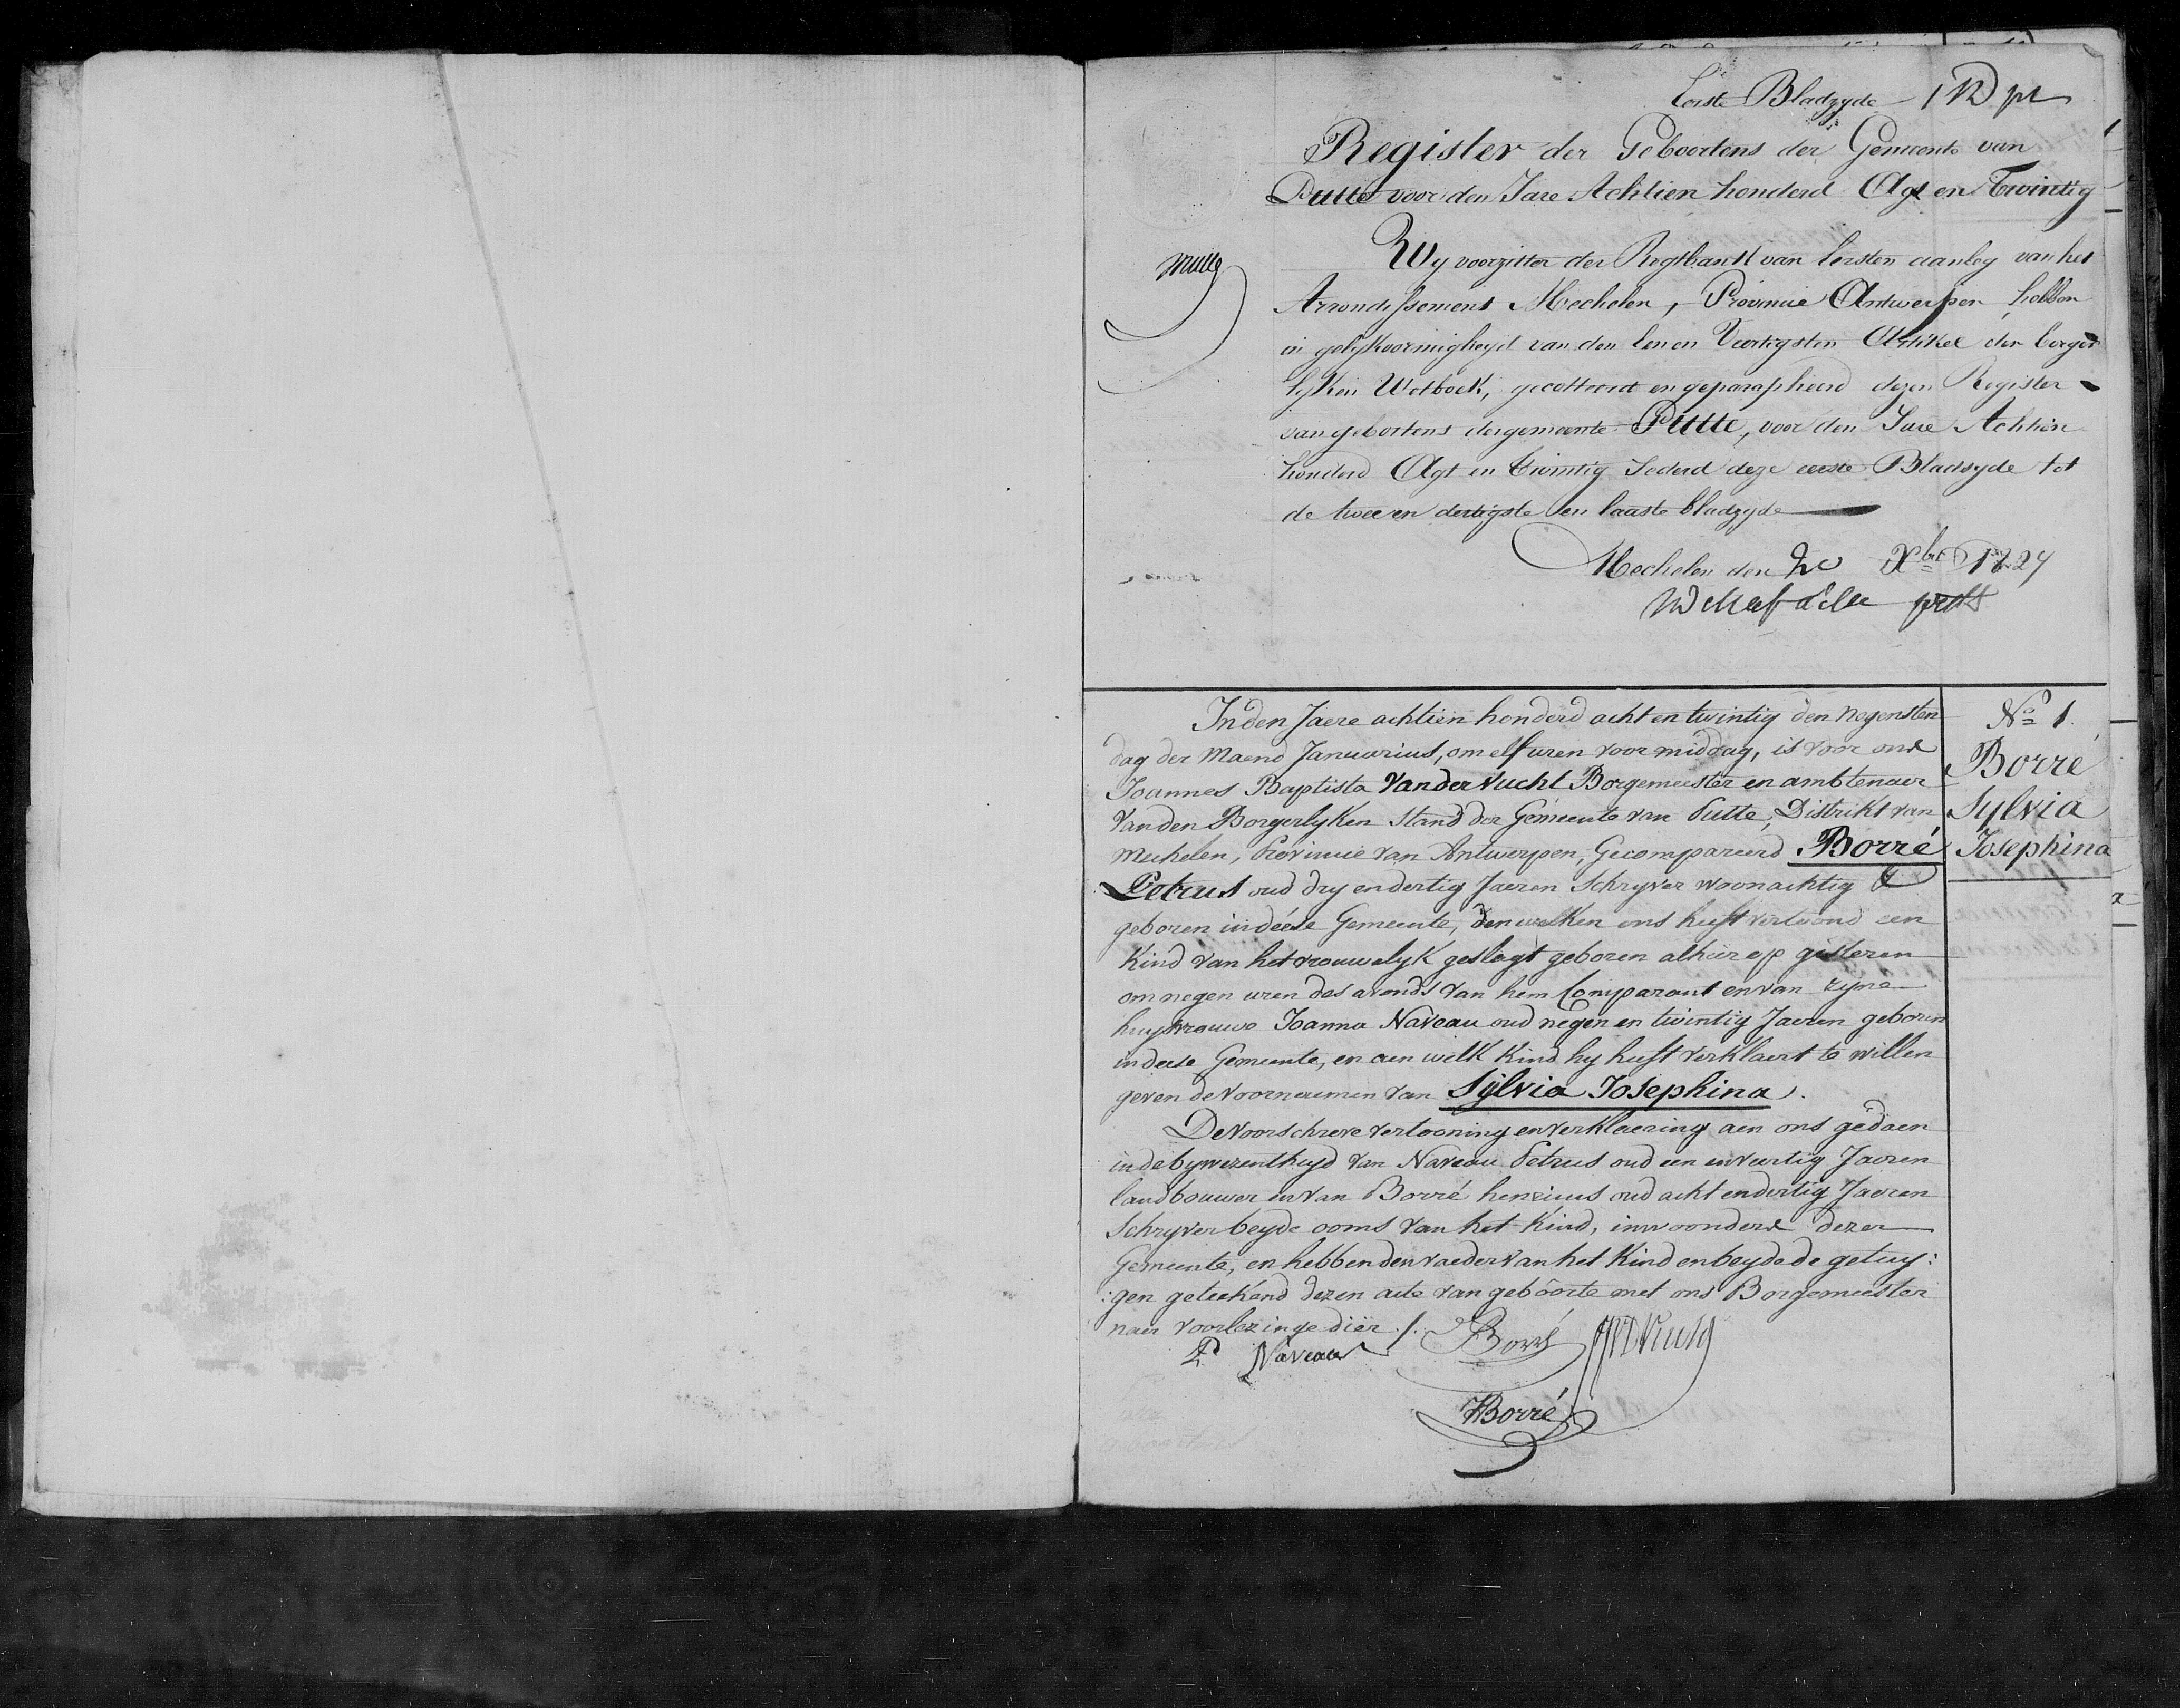 Eerste Bladzyde
Register der Geboortens der Gemeente van
Putte voor den Jare Achtien honderd Agt en Twintig
Wy voorzitter der Regtbank van Eersten aanleg van het
Arrondissement Mechelen, Provincie Antwerpen, hebben
in gelykvormigheyd van den Een en Veertigsten Artikel der borger
lyken Wetboek, gecotteerd en geparapheerd dezen Register
van gebortens der gemeente Putte, voor den Jare Achtien
honderd Agt en Twintig Sederd deze eerste Bladsyde tot
de twee en dertigste en laaste bladzyde
Mechelen den Xbre 1827
In den Jaere achtien honderd acht en twintig den negensten
dag der Maend Januarius, om elf uren voor middag, is voor ons
Joannes Baptista Van der Vucht Borgemeester en ambtenaer
van den Borgerlyken Stand der Gemeente van Putte, Distrikt van
Mechelen, Provincie van Antwerpen, Gecompareerd Borré
Petrus oud dry en dertig Jaeren Schryver woonachtig &
geboren in déése Gemeente, den welken ons heeft vertoond een
Kind van het vrouwelyk geslagt geboren alhier op gisteren
om negen uren des avonds van hem Comparant en van zyne
huysvrouwe Joanna Naveau oud negen en twintig Jaeren geboren
in deese Gemeente, en aen welk Kind hy heeft verklaert te willen
geven de voornaemen van Sylvia Josephina.
De voorschreve vertooning en verklaering aen ons gedaen
in de bywezentheyd van Naveau Petrus oud een en veertig Jaeren
landbouwer en van Borré henricus oud acht en dertig Jaeren
Schryver beyde ooms van het Kind, inwoonders dezer
Gemeente, en hebben den vaeder van het Kind en beyde de getuy:
:gen geteekend dezen acte van geboorte met ons Borgemeester
naer voorlezinge dier ./.
P Naveau Borré
Borré
No 1.
Borré
Sylvia
Josephina